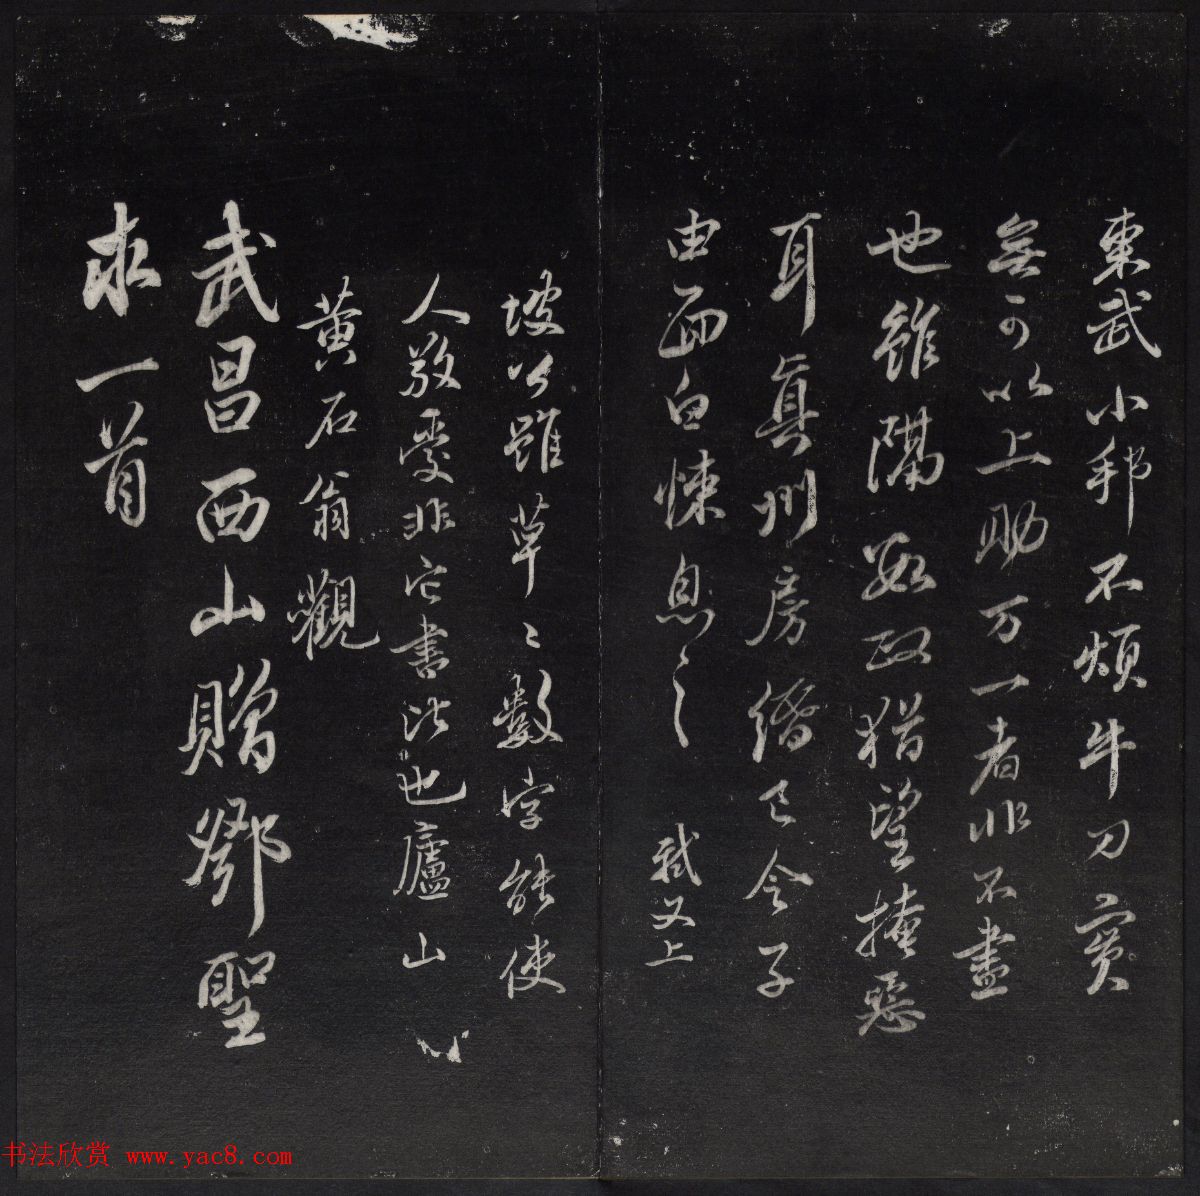 東武小邦不煩牛刀實
無可以上助万一者非不盡
也雖隔數政猶望掩惡
耳真州房緡已令子
由面白悚息〻〻 軾又上
坡公雖草〻數字能使
人敬愛非它書比也廬山
黃石翁觀
武昌西山贈鄧聖
求一首
书法欣赏 www.yac8.com